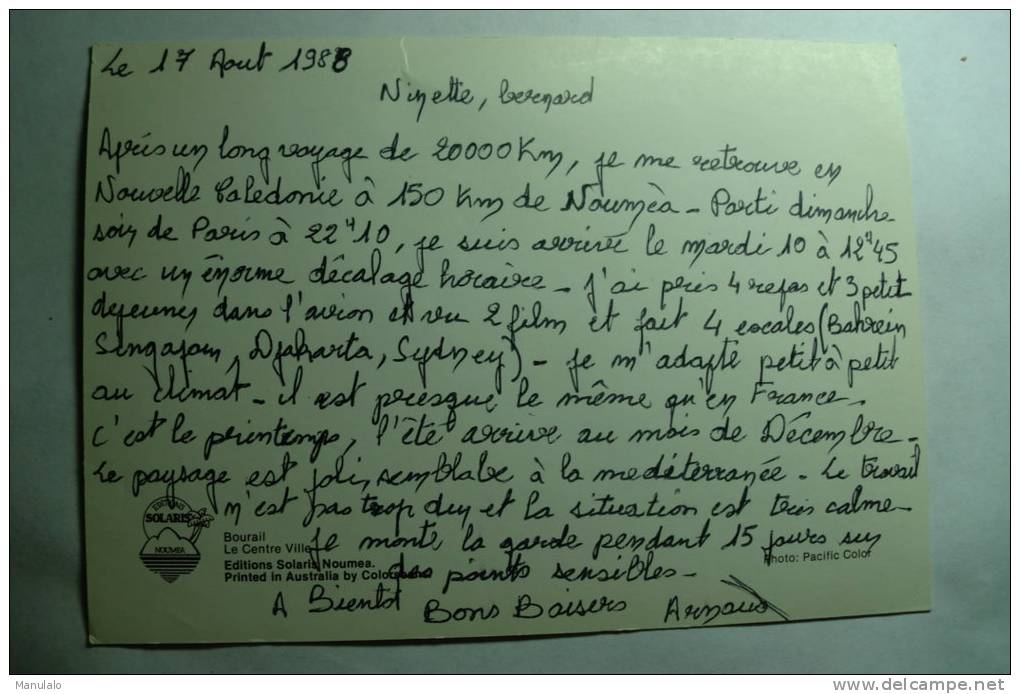 Le 17 Aout 1988
Ninette, bernard
Après un long voyage de 20000 Km, je me retrouve en
Nouvelle Caledonie à 150 Km de Nouméa - Parti dimanche
soir de Paris à 22H10, je suis arrivé le mardi 10 à 12H45
avec un énorme décalage horaire - J'ai pris 4 repas et 3 petit
dejeuner dans l'avion et vu 2 film et fait 4 escales (Bahrein
Singapour, Djakarta, Sydney) - je m'adapte petit à petit
au climat - il est presque le même qu'en France -
c'est le printemps, l'été arrive au mois de Décembre -
Le paysage est joli, semblable à la mediterranée - Le travail
n'est pas trop dur et la situation est très calme -
Je monte la garde pendant 15 jours sur
des points sensibles -
A Bientot Bons Baisers Arnaud
EDITIONS
SOLARIS
NOUMEA
Bourail
Le Centre Ville
Editions Solaris Noumea.
Printed in Australia by
Photo: Pacific Color
Manulalo
delcampe.net